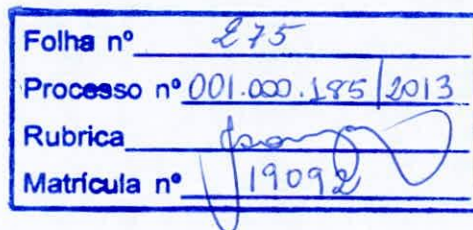 Folha nº 275
Processo nº 001.000.185/2013
Rubrica
Matrícula nº 19092